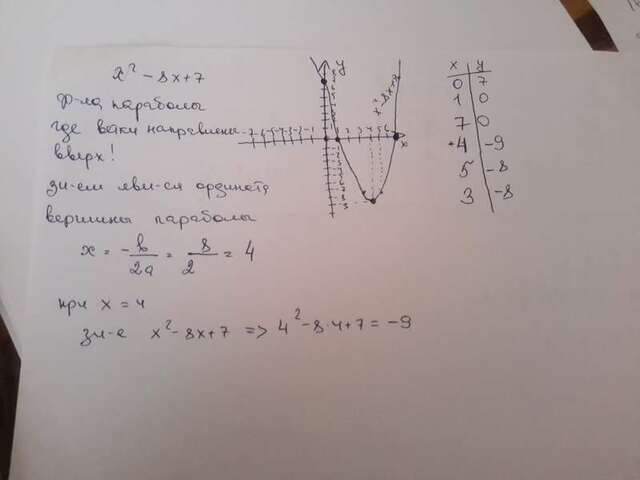 x² - 8x + 7
Ф-ла параболы
где ветки направлены
вверх!
зн-ем яви-ся ордината
вершины параболы
x = -b/2a = 8/2 = 4
при x = 4
зн-е x² - 8x + 7 => 4² - 8·4 + 7 = -9
y
x² - 8x + 7
x
-7 -6 -5 -4 -3 -2 -1
x y
0 7
1 0
7 0
4 -9
5 -8
3 -8